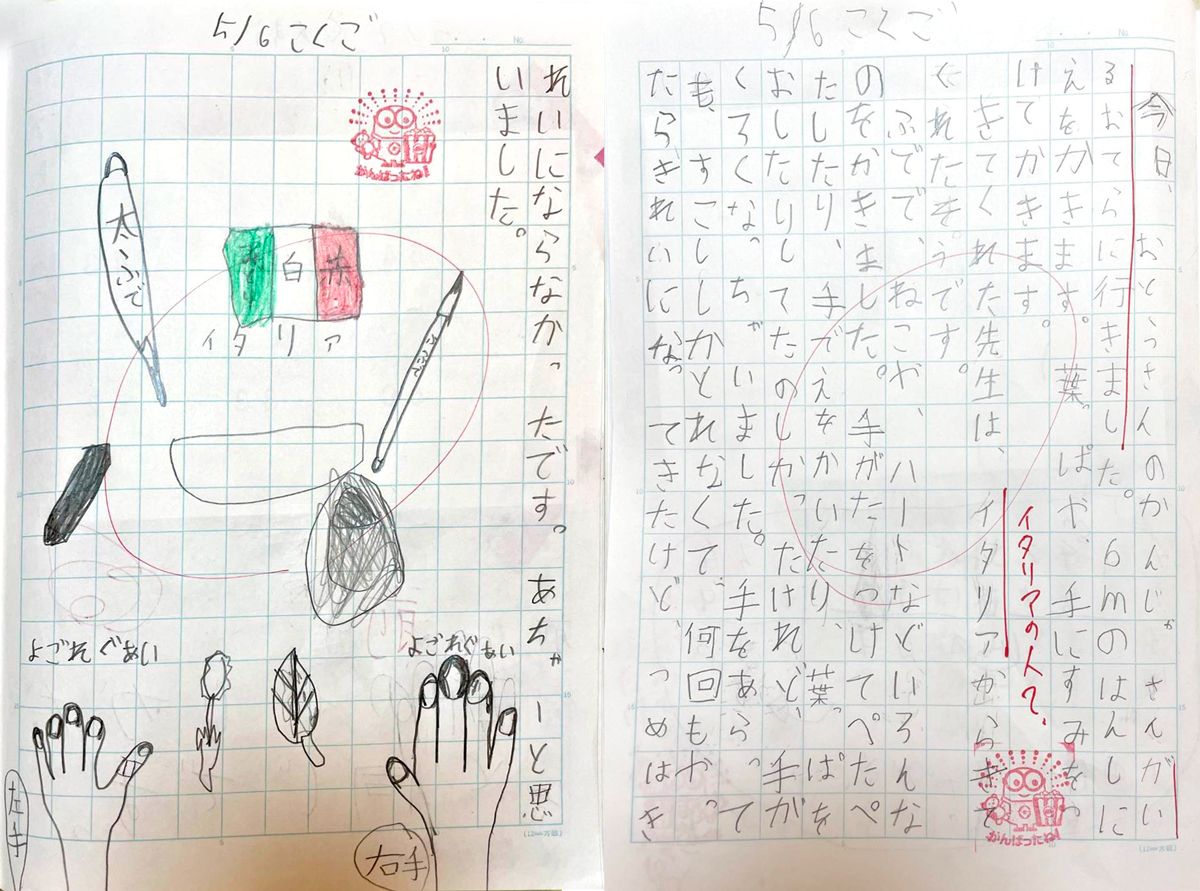 5/6 こくご
今日、おとうさんのかんじゃさんがい
るおてらに行きました。6mのはんしに
えをかきます。葉っぱや、手にすみをつ
けてかきます。
イタリアの人で、
きてくれた先生は、イタリアからきて
くれたそうです。
ふででねこや、ハートなどいろんな
のをかきました。手がたをつけてぺたぺ
たしたり、手でえをかいたり、葉っぱを
おしたりして、たのしかったけれど、手が
くろくなっちゃいました。手をあらって
も、すこししかとれなくて何回もやっ
たらきれいになってきたけど、つめはき
がんばったね!
5/6 こくご
れいにならなかったです。あちゃーと思
いました。
がんばったね!
太ふで
白
赤
イタリア
よごれぐあい
よごれぐあい
左手
右手